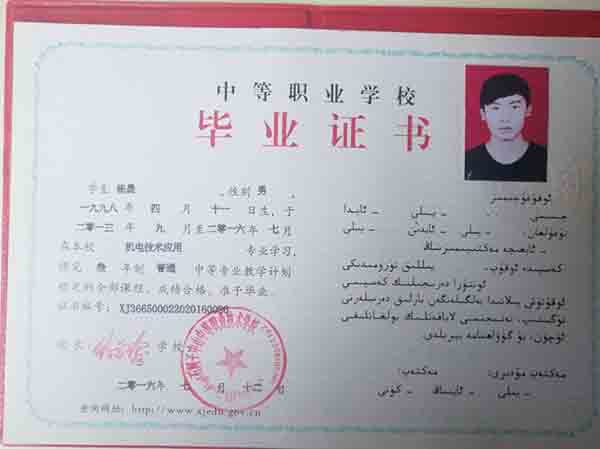 中等职业学校
毕业证书
学生 杨晨 ，性别 男 ，
一九九八 年 四 月 十一 日生，于
二零一三 年 九 月至二零一六 年 七 月
在本校 机电技术应用 专业学习，
修完 叁 年制 普通 中等专业教学计划
规定的全部课程，成绩合格，准予毕业。
证书编号： XJ366500022020160086
校长 学校
二零一六年 七 月 十二 日
查询网址：http://www.xjedu.gov.cn
ئوقۇغۇچىمىز
جىنسى ـ يىلى ـ ئايدا
تۇغۇلغان، ـ يىلى ـ ئايدىن ـ يىلى
ـ ئايغىچە مەكتىپىمىزنىڭ
كەسپىدە ئوقۇپ، يىللىق تۈزۈمدىكى
ئوتتۇرا دەرىجىلىك كەسپىي
ئوقۇتۇش پىلانىدا بەلگىلەنگەن بارلىق دەرسلەرنى
تۈگىتىپ، نەتىجىسى لاياقەتلىك بولغانلىقى
ئۈچۈن، بۇ گۇۋاھنامە بېرىلدى.
مەكتەپ مۇدىرى: مەكتەپ:
ـ يىلى ـ ئاينىڭ ـ كۈنى